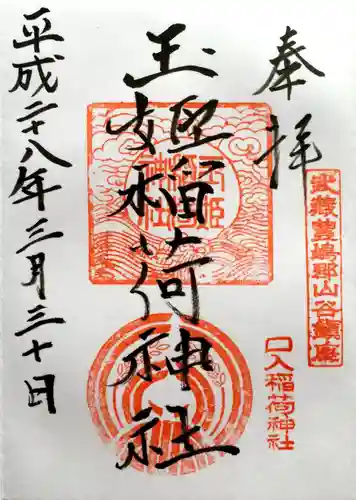 奉拝
武藏豊嶋郡山谷鎮座
口入稲荷神社
玉姫稲荷神社
平成二十八年三月三十日